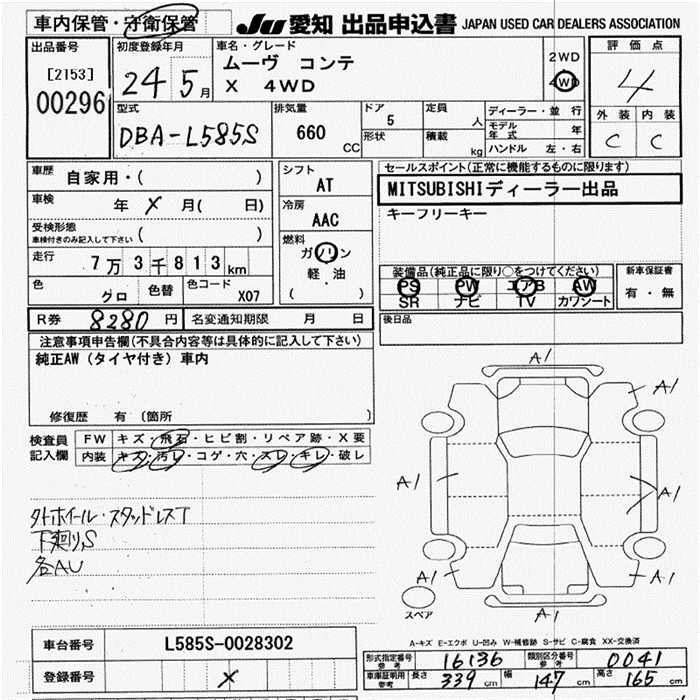 車内保管・守衛保管
JU 愛知 出品申込書 JAPAN USED CAR DEALERS ASSOCIATION
出品番号
[2153]
00296
初度登録年月
24 5月
車名・グレード
ムーヴ コンテ
X 4WD
2WD
4WD
評価点
4
外装 内装
C C
型式
DBA-L585S
排気量
660 CC
ドア
5
形状
定員
人
積載
kg
ディーラー・並行
モデル年式 年
ハンドル 左・右
車歴 自家用・( )
車検 年 X 月( 日)
受検形態
車検付きのみ記入して下さい ( )
走行 7万3千813km
色 クロ 色替 色コード X07
シフト
AT
冷房
AAC
燃料
ガソリン
軽・油
( )
セールスポイント(正常に機能するものに限ります)
MITSUBISHIディーラー出品
キーフリーキー
装備品(純正品に限り○をつけてください)
PS PW エアB AW
SR ナビ TV カワシート
新車保証書
有・無
R券 8280 円 名変通知期限 月 日
後日品
注意事項申告欄(不具合内容等は具体的に記入して下さい)
純正AW(タイヤ付き)車内
修復歴 有(箇所 )
検査員記入欄
FW キズ・飛石・ヒビ割・リペア跡・X要
内装 キズ・汚レ・コゲ・穴・スレ・キレ・破レ
外ホイール・スタッドレスT
下廻りS
各AU
A1
A1
A1
A1
A1
A1
A1
スペア
A-キズ E-エクボ U-凹み W-補修跡 S-サビ C-腐食 XX-交換済
車台番号 L585S-0028302
登録番号 X
形式指定番号 参考 16136 類別区分番号 参考 0041
車庫証明用参考 長さ 339 cm 幅 147 cm 高さ 165 cm